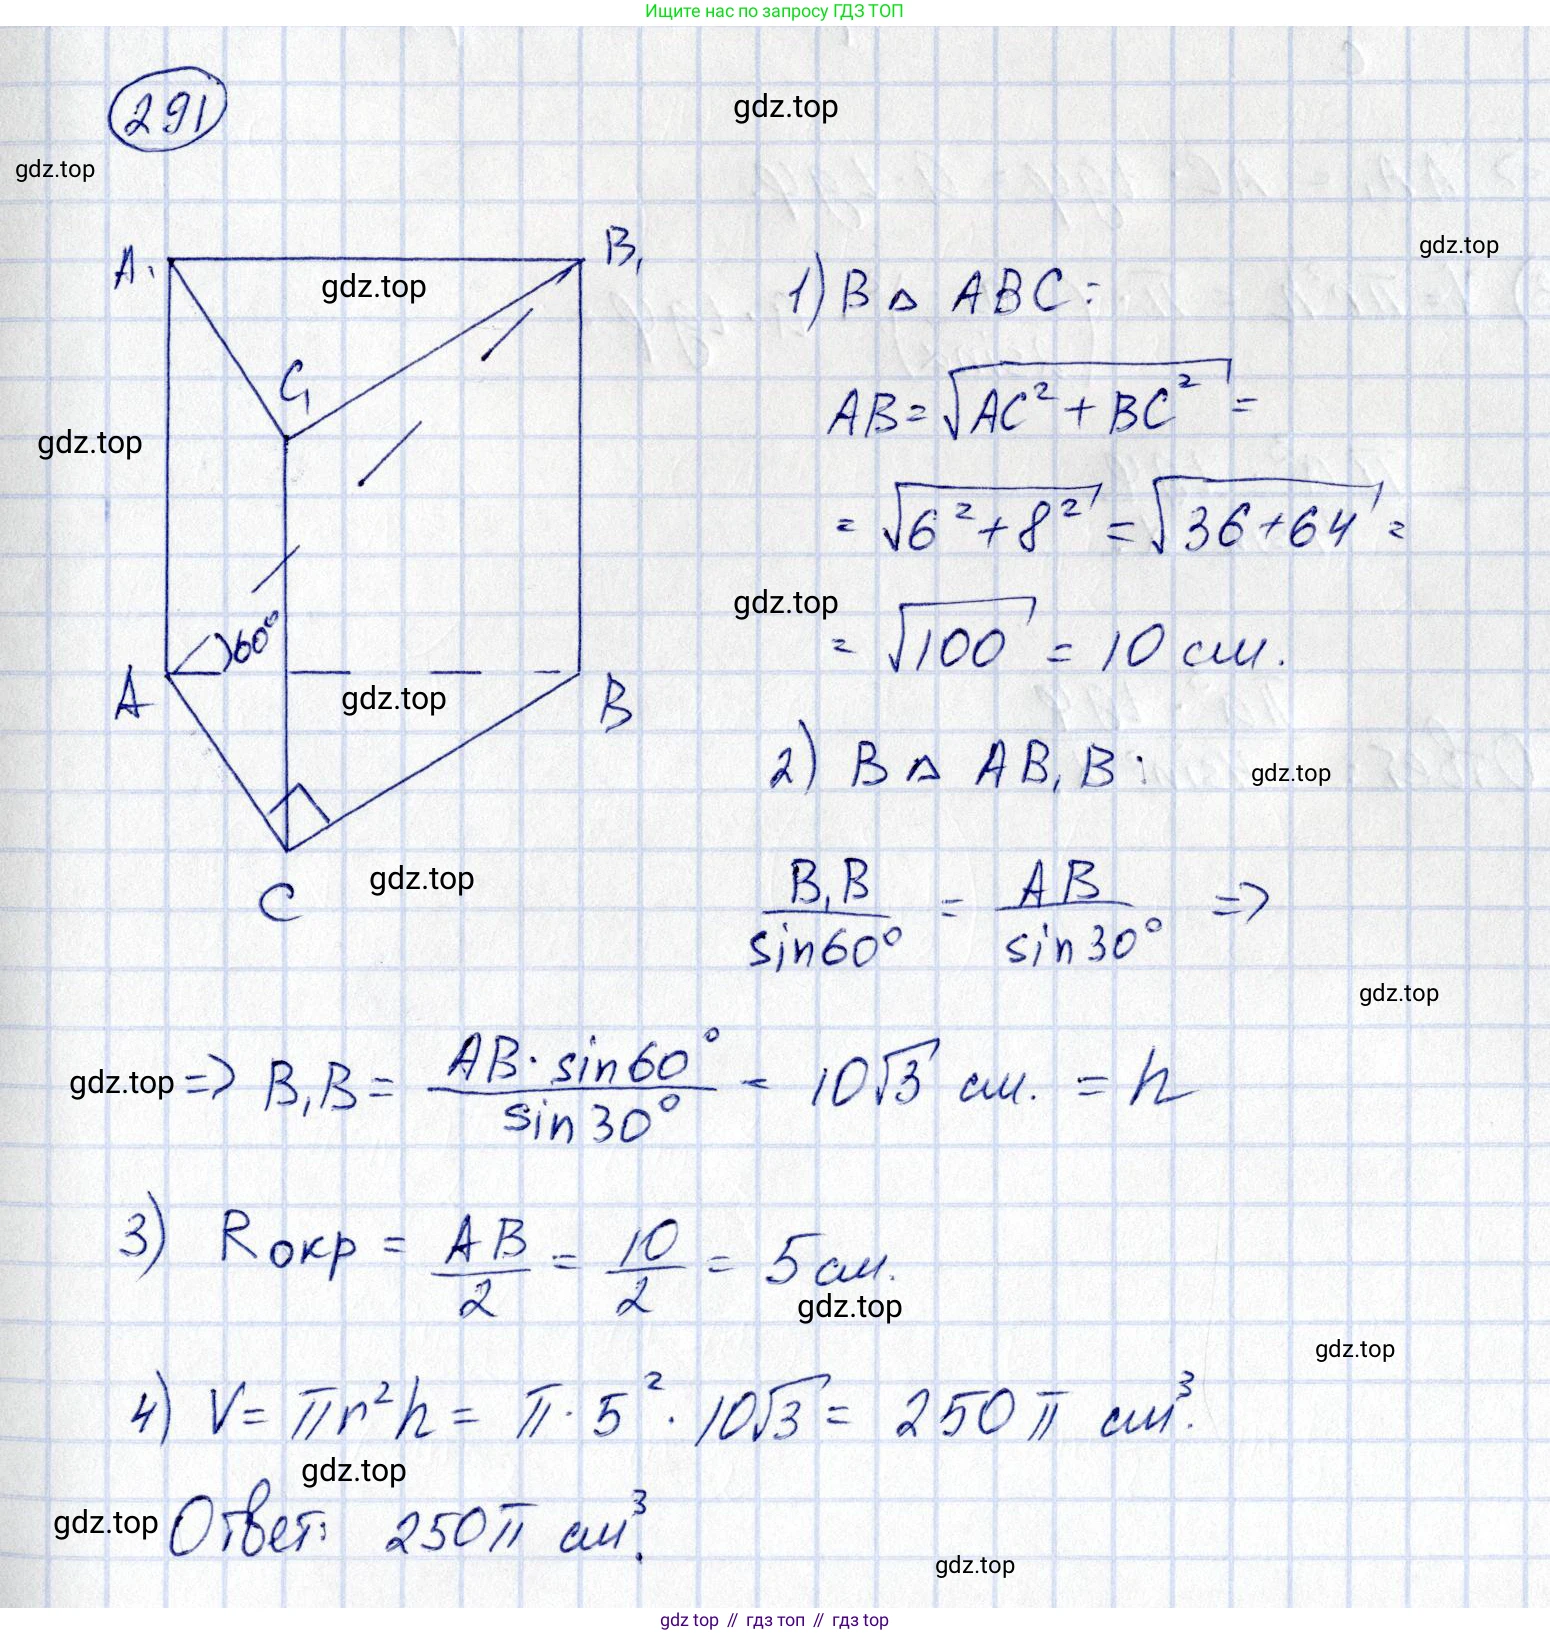 Ищите нас по запросу ГДЗ ТОП
291
gdz.top
gdz.top
gdz.top
A₁
B₁
gdz.top
C₁
gdz.top
60°
A
gdz.top
B
C
gdz.top
1) В △ ABC:
AB = √(AC² + BC²) =
= √(6² + 8²) = √(36+64) =
gdz.top
= √100 = 10 см.
2) В △ AB₁B:
gdz.top
B₁B/sin60° = AB/sin30° =>
gdz.top
gdz.top
=> B₁B = AB·sin60°/sin30° = 10√3 см. = h
3) Rокр = AB/2 = 10/2 = 5см.
gdz.top
gdz.top
4) V = πr²h = π·5²·10√3 = 250π см³.
gdz.top
gdz.top
Ответ: 250π см³.
gdz.top
gdz top // гдз топ // гдз top